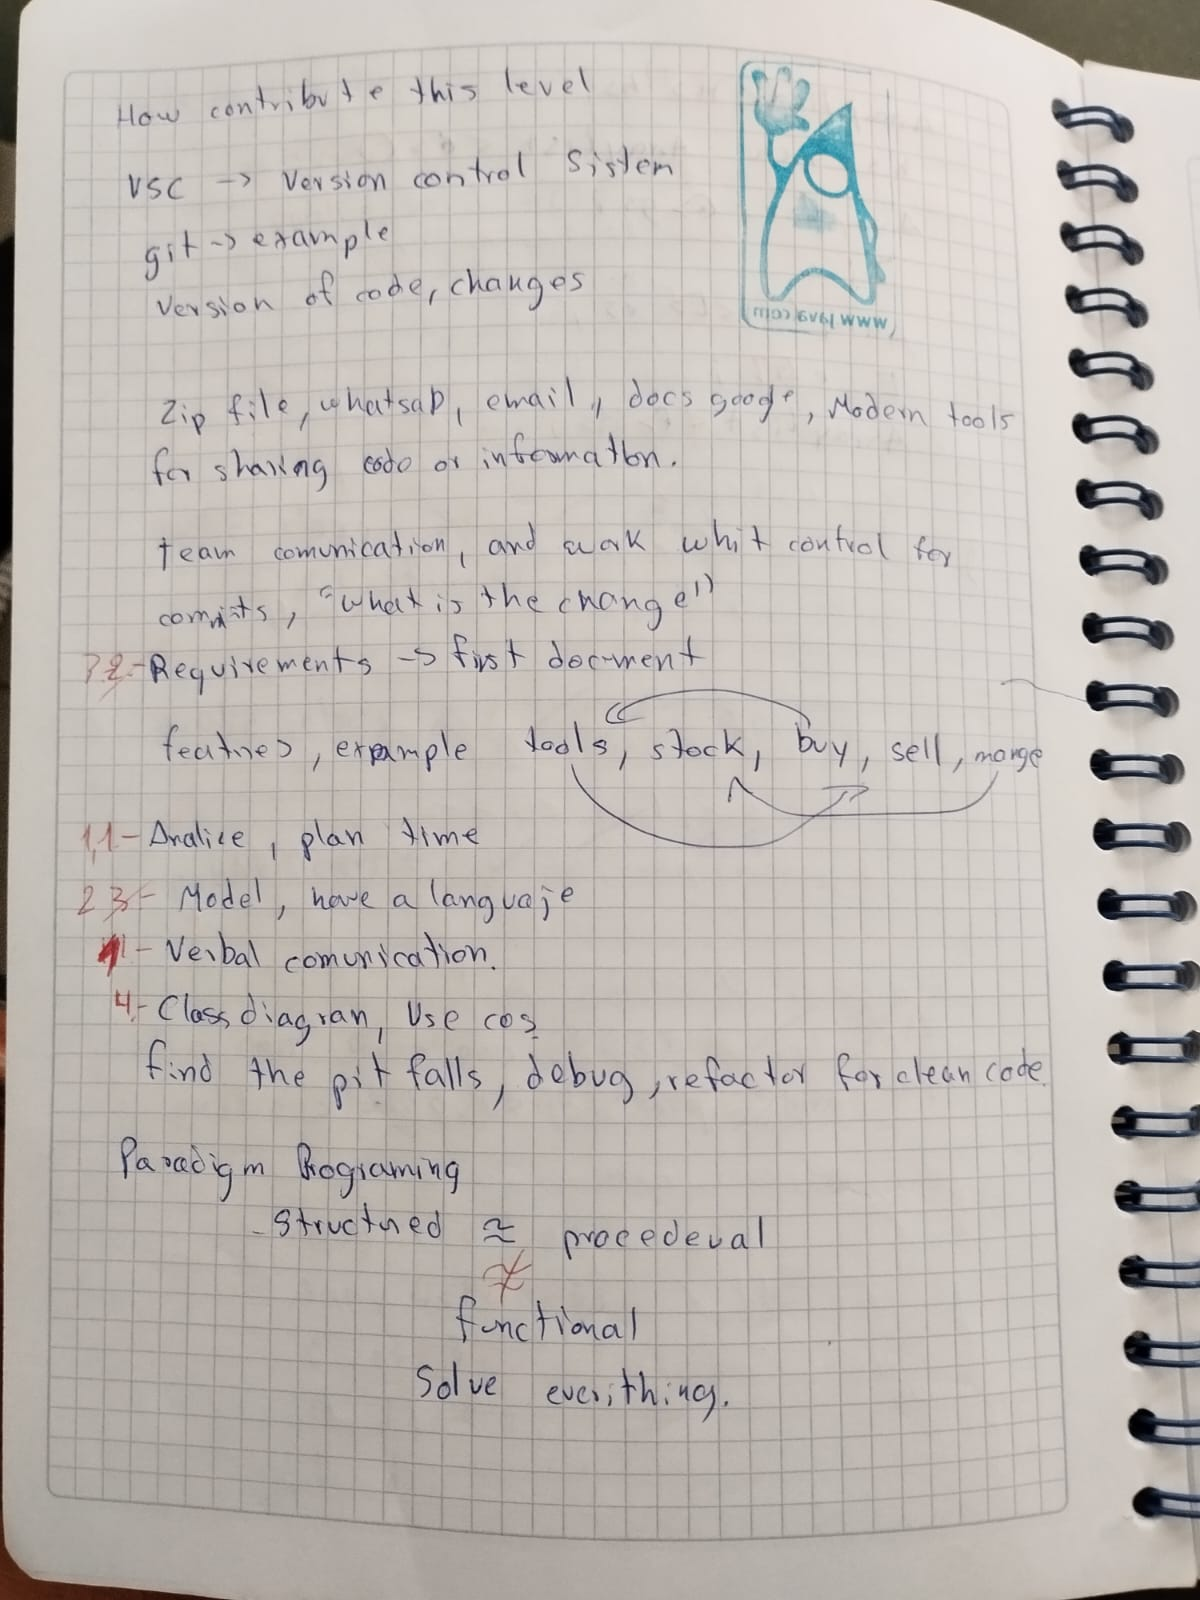 How contribute this level
VSC -> Version control Sistem
git -> example
Version of code, changes
www.java.com
Zip file, whatsap, email, docs google, Modern tools
for sharing code or information.
team comunication, and work whit control for
commits, "what is the change"
Requirements -> first document
features, example tools, stock, buy, sell, marge
1.1- Analice, plan time
2 3- Model, have a languaje
1- Verbal comunication.
4- Class diagran, Use cos
find the pit falls, debug, refactor for clean code.
Paradigm Programing
- Structured ≈ procedeual
≠
functional
Solve everithing.